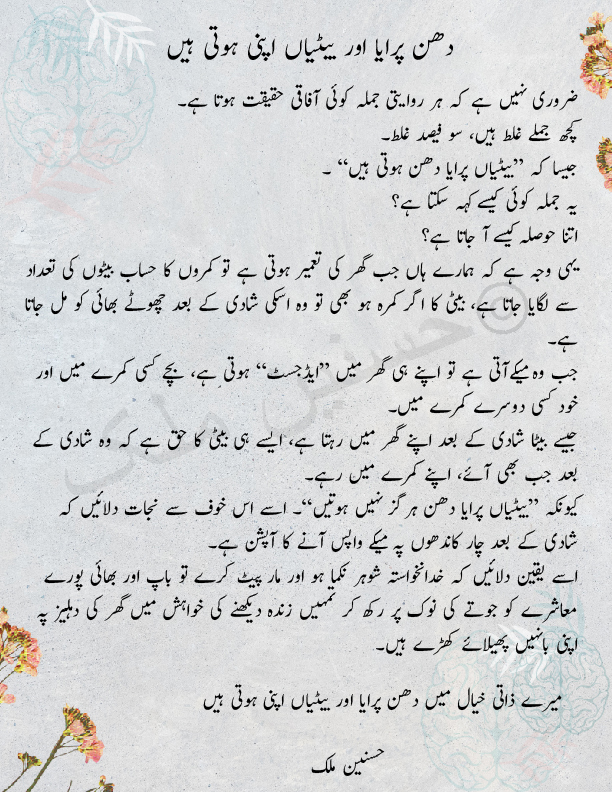 دھن پرایا اور بیٹیاں اپنی ہوتی ہیں
ضروری نہیں ہے کہ ہر روایتی جملہ کوئی آفاقی حقیقت ہوتا ہے۔
کچھ جملے غلط ہیں، سو فیصد غلط۔
جیسا کہ ”بیٹیاں پرایا دھن ہوتی ہیں“ ۔
یہ جملہ کوئی کیسے کہہ سکتا ہے؟
اتنا حوصلہ کیسے آ جاتا ہے؟
یہی وجہ ہے کہ ہمارے ہاں جب گھر کی تعمیر ہوتی ہے تو کمروں کا حساب بیٹوں کی تعداد
سے لگایا جاتا ہے، بیٹی کا اگر کمرہ ہو بھی تو وہ اسکی شادی کے بعد چھوٹے بھائی کو مل جاتا
ہے۔
جب وہ میکے آتی ہے تو اپنے ہی گھر میں ”ایڈجسٹ“ ہوتی ہے، بچے کسی کمرے میں اور
خود کسی دوسرے کمرے میں۔
جیسے بیٹا شادی کے بعد اپنے گھر میں رہتا ہے، ایسے ہی بیٹی کا حق ہے کہ وہ شادی کے
بعد جب بھی آئے، اپنے کمرے میں رہے۔
کیونکہ ”بیٹیاں پرایا دھن ہرگز نہیں ہوتیں“۔ اسے اس خوف سے نجات دلائیں کہ
شادی کے بعد چار کاندھوں پہ میکے واپس آنے کا آپشن ہے۔
اسے یقین دلائیں کہ خدانخواستہ شوہر نکما ہو اور مار پیٹ کرے تو باپ اور بھائی پورے
معاشرے کو جوتے کی نوک پر رکھ کر تمہیں زندہ دیکھنے کی خواہش میں گھر کی دہلیز پہ
اپنی بانہیں پھیلائے کھڑے ہیں۔
میرے ذاتی خیال میں دھن پرایا اور بیٹیاں اپنی ہوتی ہیں
حسنین ملک
© حسنین ملک